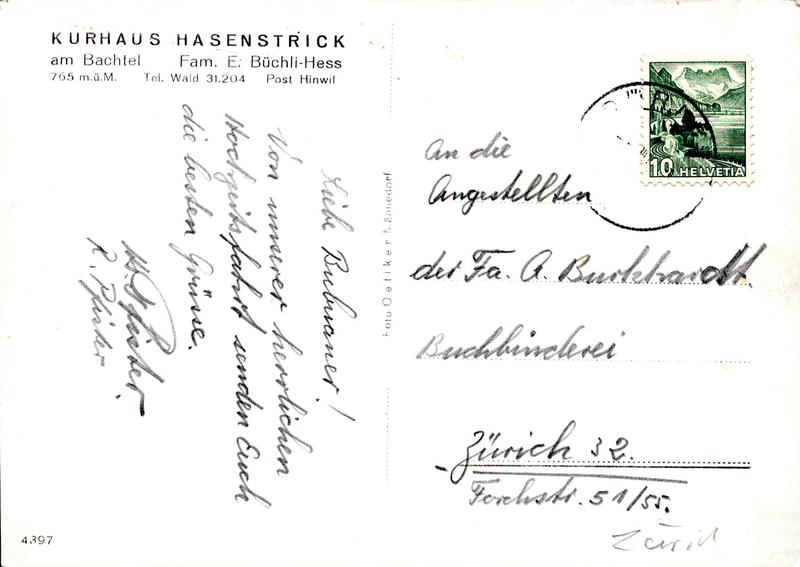 KURHAUS HASENSTRICK
am Bachtel Fam. E. Büchli-Hess
765 m.ü.M. Tel. Wald 31.204 Post Hinwil
Liebe Bubianer!
Von unserer herrlichen
Hochzeitsfahrt senden Euch
die besten Grüsse.
W. Pfister
R. Pfister.
Foto Oetiker Männedorf
10 HELVETIA
An die
Angestellten
der Fa. A. Burkhardt
Buchbinderei
Zürich 32.
Forchstr. 51/55.
Zürich
4397